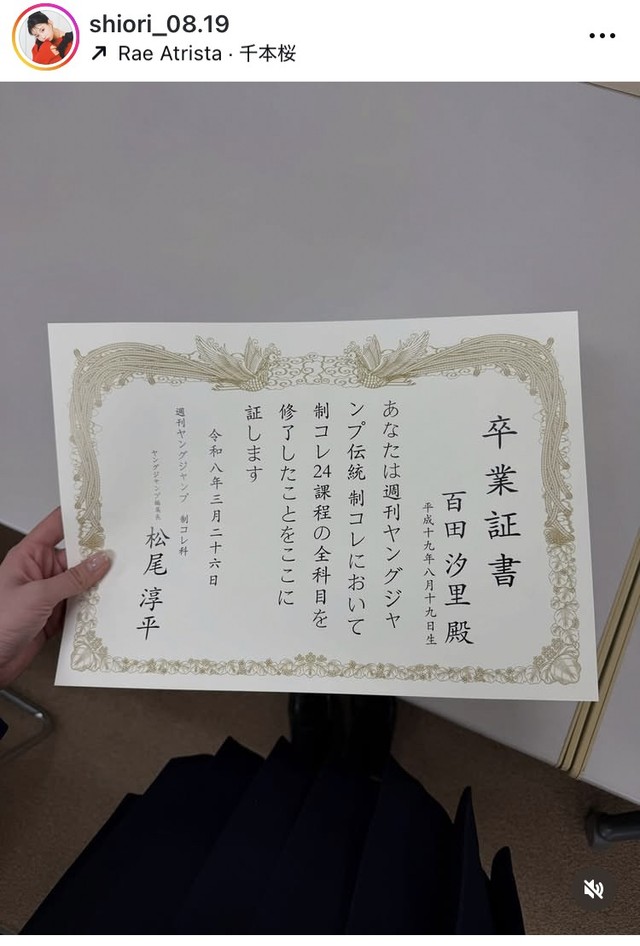 shiori_08.19
Rae Atrista · 千本桜
卒業証書
百田 汐里 殿
平成十九年八月十九日生
あなたは週刊ヤングジャ
ンプ伝統 制コレにおいて
制コレ24課程の全科目を
修了したことをここに
証します
令和八年三月二十六日
週刊ヤングジャンプ 制コレ科
ヤングジャンプ編集長
松尾 淳平